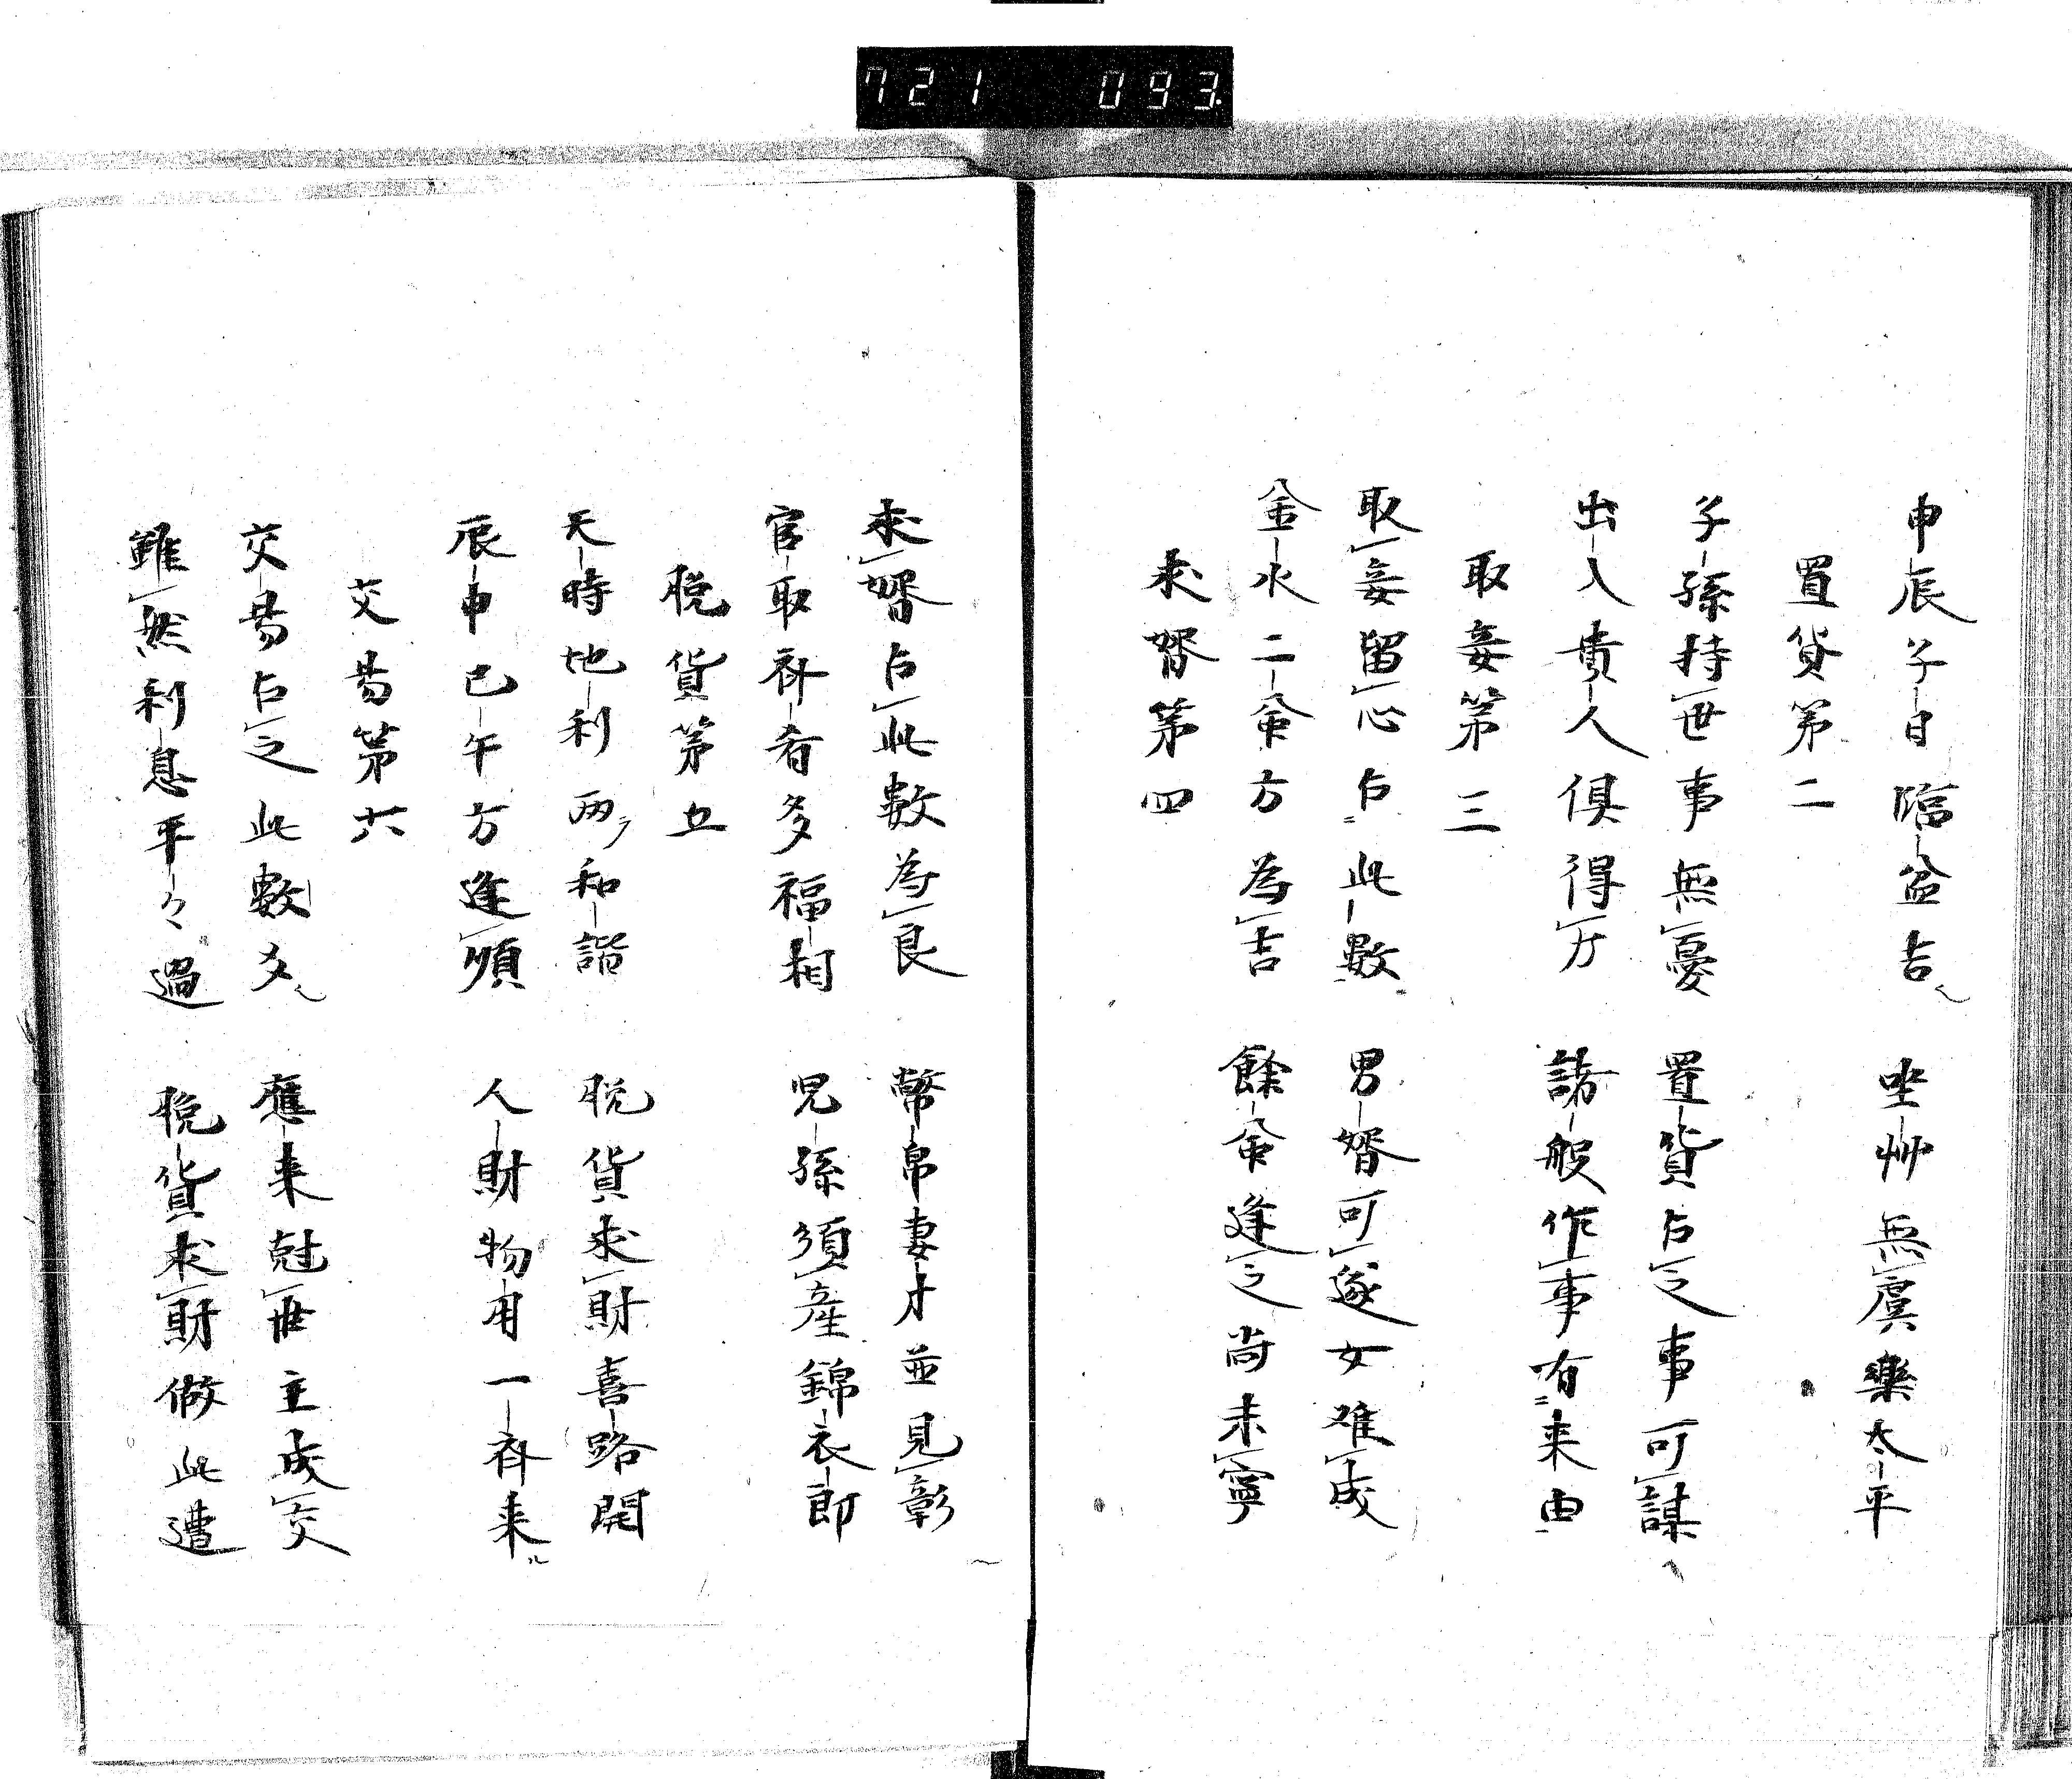 721 093.
申辰子日臨盆吉 坐艸無虞樂太平
置貨第二
子孫持世事無憂 置貨占之事可謀
出入貴人倶得力 諸般作事有来由
取妾第三
取妾留心占此數 男婿可遂女难成
金水二命方為吉 餘命逢之尚未寧
求婿第四
求婿占此數為良 幣帛妻才並見彰
官取齐眉多福相 児孫須産錦衣郎
脱貨第五
天時地利両和諧 脱貨求財喜路開
辰申巳午方逢順 人財物用一齐来
交易第六
交易占之此數爻 應来尅世主成交
雖然利息平々過 脱貨求財倣此遭